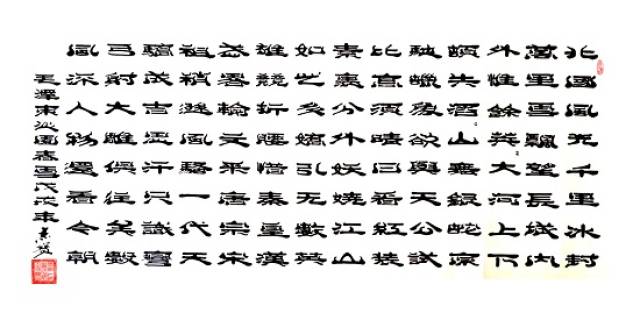 北國風光千里冰封
萬里雪飄望長城內
外惟餘莽大河上下
頓失滔山舞銀蛇原
馳蠟象欲與天公試
比高須晴日看紅裝
素裹分外妖嬈江山
如此多嬌引无數英
雄競折腰惜秦皇漢
武畧輸文采唐宗宋
祖稍遜風騷一代天
驕成吉思汗只識彎
弓射大雕俱往矣數
風流人物還看今朝
毛澤東沁園春雪戊戌年